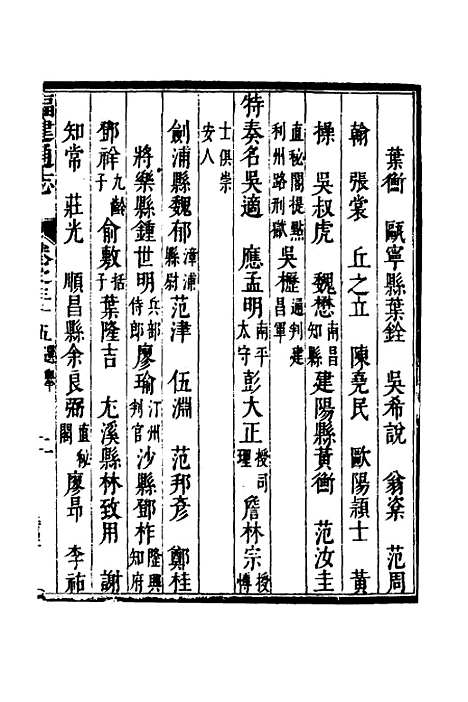 葉衡 甌寧縣葉銓 吳希說 翁粢 范周
翰 張裳 丘之立 陳堯民 歐陽頴士 黃
操 吳叔虎 魏懋南昌知縣 建陽縣黃衡 范汝圭
直秘閣提點利州路刑獄 吳櫪通判建昌軍
特奏名吳適 應孟明南平太守 彭大正授司理 詹林宗授博
士俱崇安人
劍浦縣魏郁漳浦縣尉 范津 伍淵 范邦彥 鄭桂
將樂縣鍾世明兵部侍郎 廖瑜汀州判官 沙縣鄧柞隆興知府
鄧祥九齡子 俞敷括子 葉隆吉 尤溪縣林致用 謝
知常 莊光 順昌縣余良弼直秘閣 廖昂 李祐
福建通志 卷之三十五 選舉